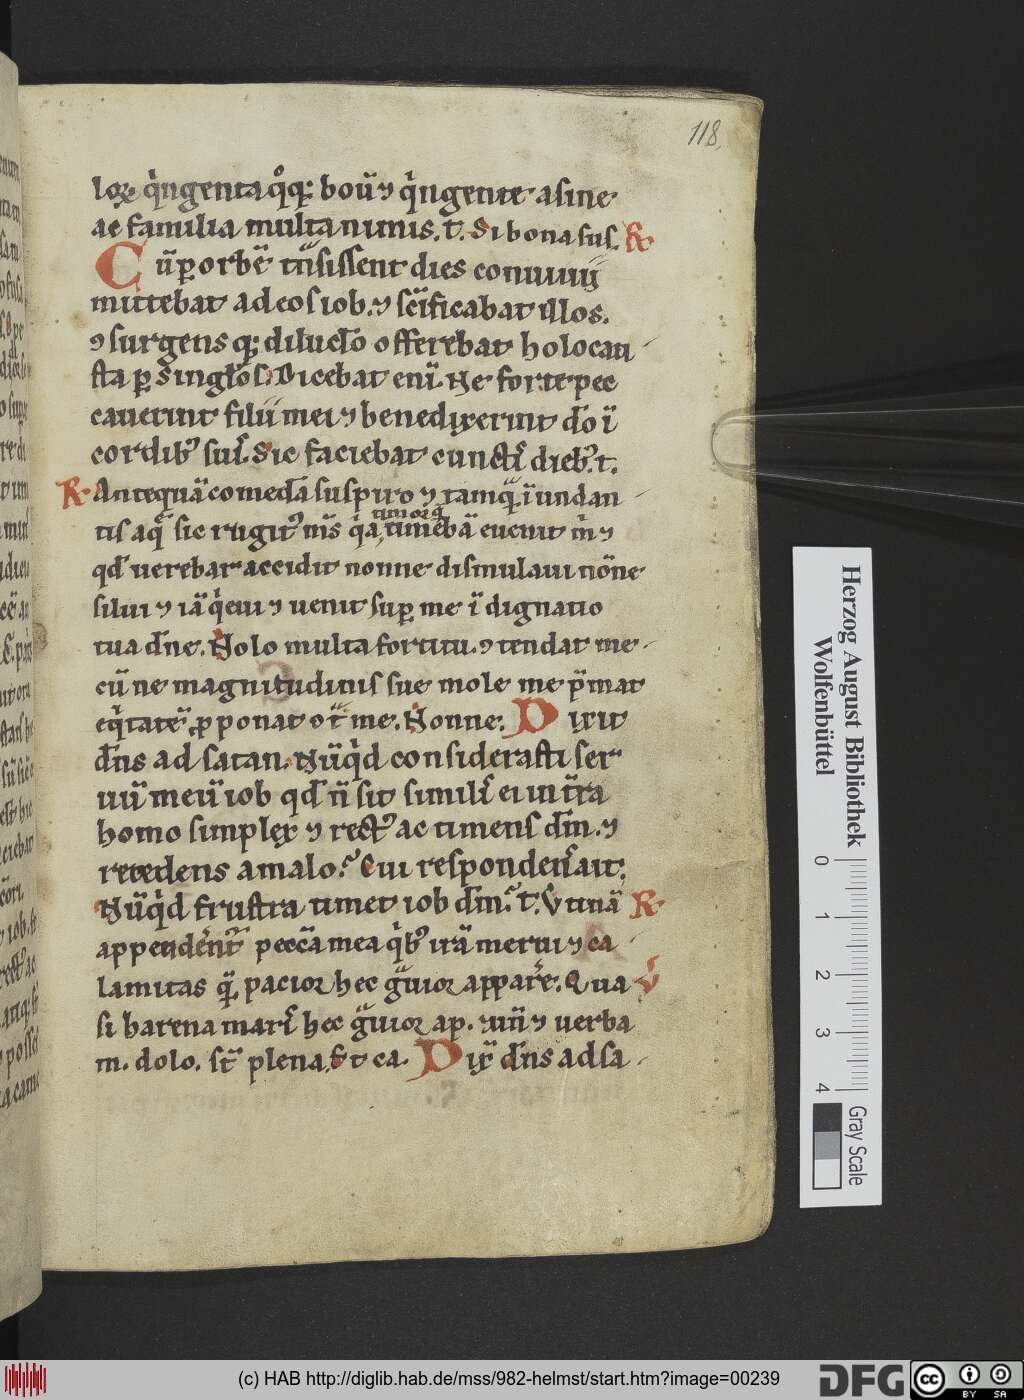 118.
loꝝ q̍ngenta qͦq; boū ⁊ q̍ngente asine
ac familia multa nimis. t. Si bona sus. R
Cū ꝑ orbē tn̄sissent dies conuiuij
mittebat ad eos iob. ⁊ scīficabat illos.
⁊ surgens q; diluclo offerebat holocau
sta ꝑ singlos. Dicebat enī. Ne forte pec
cauerint filii mei ⁊ benedixerint do ī
cordibꝰ suı̄. Sic faciebat cunctı̄ diebꝰ. t.
R Antequā comedā suspiro ⁊ tamqͣ īundan
tis aqͣ sic rugitꝰ ms̄ q̍a timor q̄ timebā euenit m̍ ⁊
qd uerebar accidit nonne disimulaui nōne
silui ⁊ iā q̍eui ⁊ uenit suꝑ me ī dignatio
tua dne. Nolo multa fortitu. ꝯtendat me
cū ne magnitudinis sue mole me p̄mat
eq̍tatē ꝓponat ꝯt̄ me. Nonne. Dixit
dns ad satan. Nūq̍d considerasti ser
uū meū iob qd n̄ sit similı̄ ei in t̄ra
homo simplex ⁊ rectꝰ ac timens dm. ⁊
recedens a malo. Cui respondens ait;
Nūq̍d frustra timet iob dm. t. Utinā R
appenderent̄ pecca mea q̍bꝰ irā merui ⁊ ca
lamitas qͣ pacior hec gͣuior appare. Qua V
si harena marı̄ hec gͣuior ap. unn̄ ⁊ uerba
m. dolo. st̄ plena. Et ca. Dix̄ dns ad sa
Herzog August Bibliothek
Wolfenbüttel
0
1
2
3
4
Gray Scale
(c) HAB http://diglib.hab.de/mss/982-helmst/start.htm?image=00239
DFG
cc BY SA